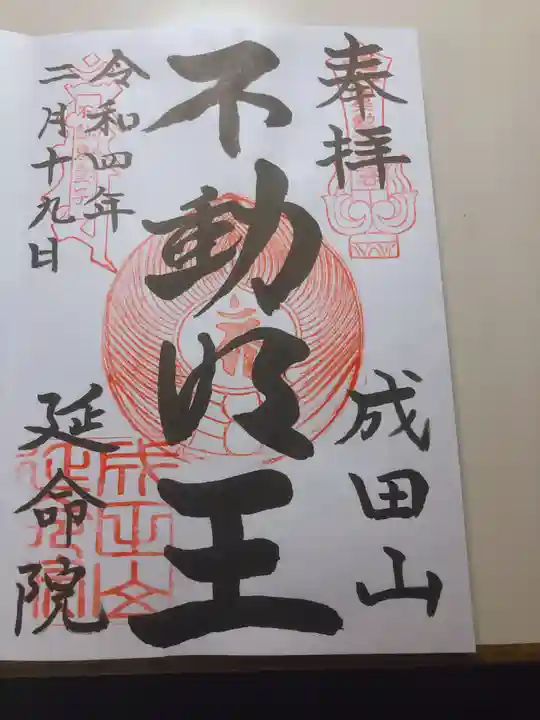 奉拝
成田山
不動明王
令和四年
二月十九日
延命院